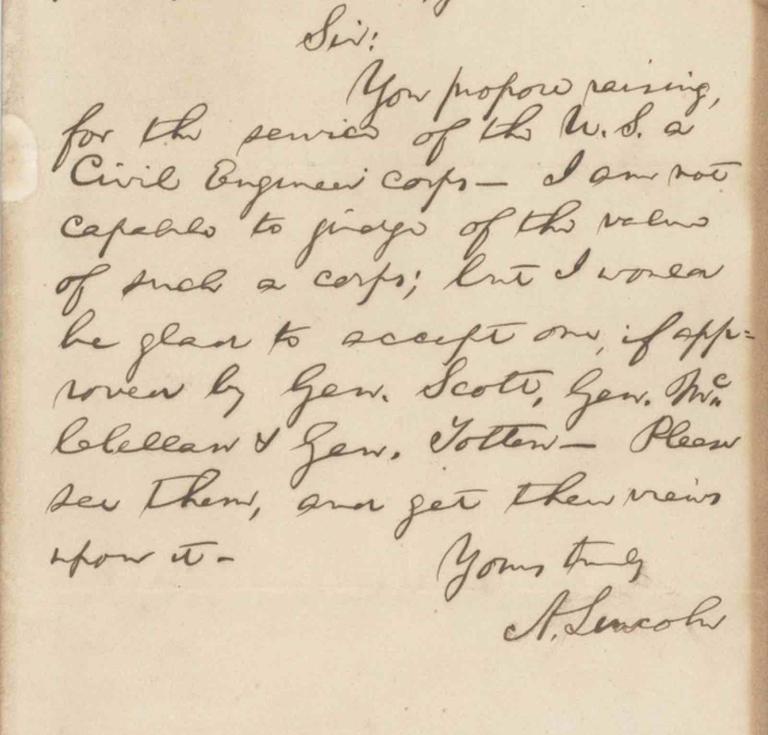 Sir:
You propose raising,
for the service of the U.S. a
Civil Engineer corps— I am not
capable to judge of the value
of such a corps; but I would
be glad to accept one, if app=
roved by Gen. Scott, Gen. Mc
Clellan & Gen. Totten— Please
see them, and get their views
upon it—
Yours truly
A. Lincoln